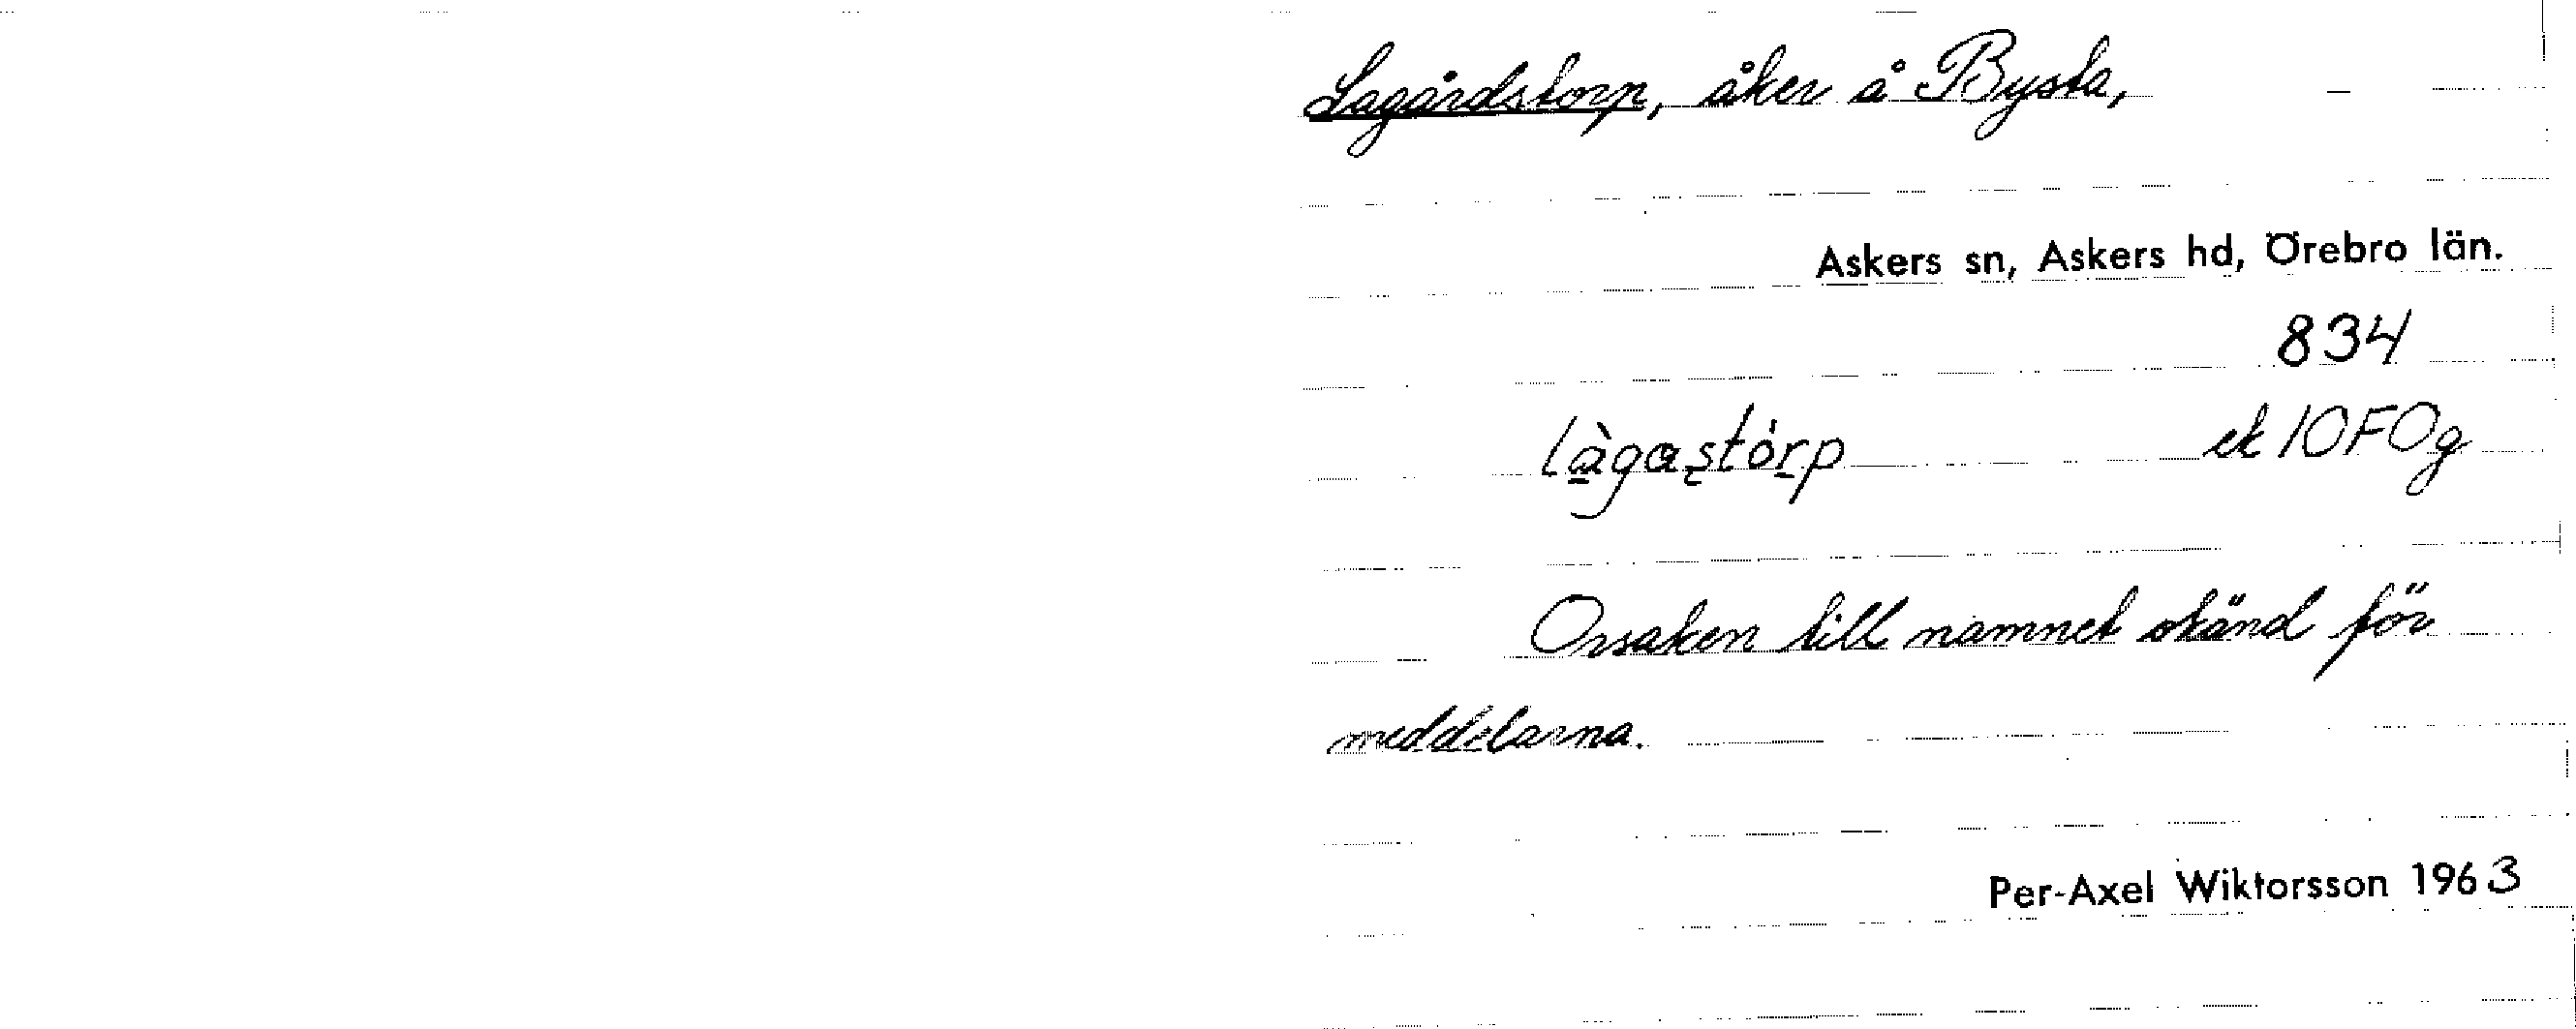 Lagårdstorp, åker å Bysta,
Askers sn, Askers hd, Örebro län.
834
làgastórp ek 10FOg
Orsaken till namnet okänd för
meddelarna.
Per-Axel Wiktorsson 1963